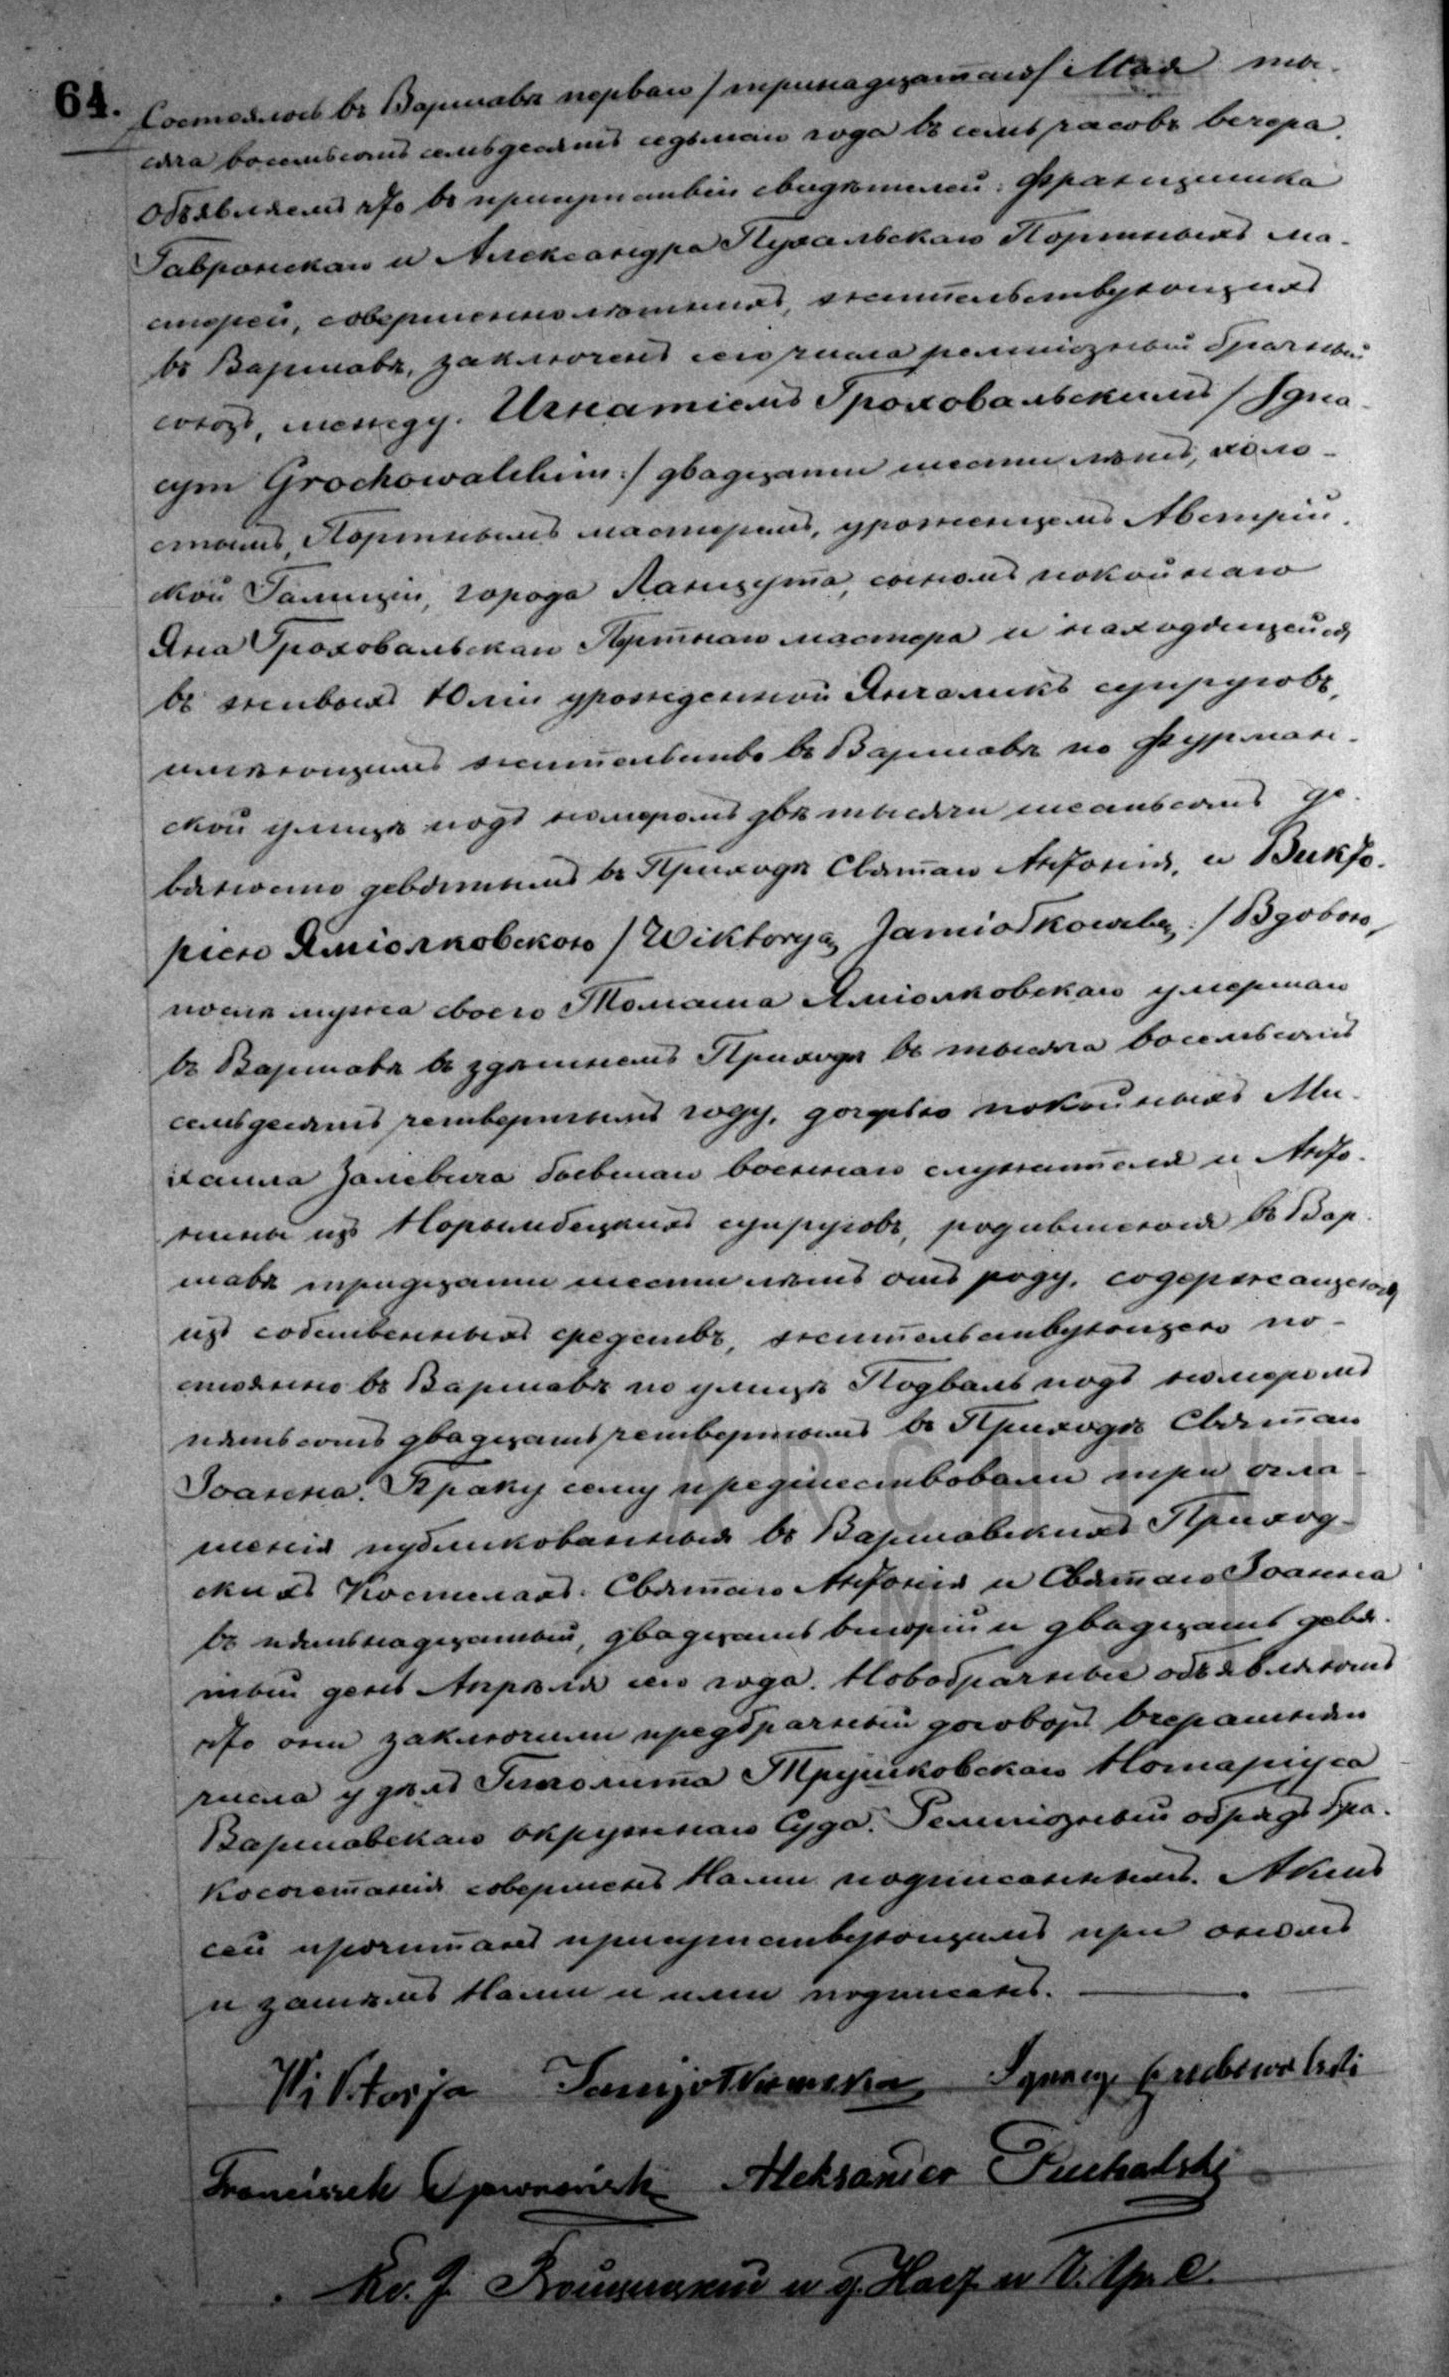 64. Состоялось въ Варшавѣ перваго /тринадцатаго/ Мая ты-
сяча восемьсотъ семьдесятъ седьмаго года въ семь часовъ вечера.
Объявляемъ что въ присутствіи свидѣтелей: Францишка
Гавронскаго и Александра Пухальскаго Портныхъ ма-
стеровъ, совершеннолѣтнихъ, жительствующихъ
въ Варшавѣ, заключенъ сего числа религіозный брачный
союзъ, между: Игнатіемъ Гроховальскимъ /Igna-
cym Grochowalskim:/ двадцати шести лѣтъ, холо-
стымъ, Портнымъ мастеромъ, уроженцемъ Австрій-
ской Галиціи, города Ланцута, сыномъ покойнаго
Яна Гроховальскаго Портнаго мастера и находящейся
въ живыхъ Юліи урожденной супруговъ,
имѣющимъ жительство въ Варшавѣ по Фурман-
ской улицѣ подъ номеромъ двѣ тысячи шестьсотъ де-
вяносто девятымъ въ Приходѣ Святаго Антонія, и Викто-
ріею Яміолковскою /Wiktoryą Jamiołkowską:/ Вдовою,
послѣ мужа своего Томаша Яміолковскаго умершаго
въ Варшавѣ въ здѣшнемъ Приходѣ въ тысяча восемьсотъ
семьдесятъ четвертымъ году, дочерью покойныхъ Ми-
хаила Залевича бывшаго военнаго служителя и Анто-
нины изъ супруговъ, родившеюся въ Вар-
шавѣ тридцати шести лѣтъ отъ роду, содержащеюся
изъ собственныхъ средствъ, жительствующею по-
стоянно въ Варшавѣ по улицѣ Подваль подъ номеромъ
пятьсотъ двадцать четвертымъ въ Приходѣ Святаго
Іоанна. Браку сему предшествовали три огла-
шенія публикованныя въ Варшавскихъ Приход-
скихъ Костелахъ: Святаго Антонія и Святаго Іоанна
въ пятьнадцатый, двадцать вторый и двадцать девя-
тый день Апрѣля сего года. Новобрачные объявляютъ
что они заключили предбрачный договоръ вчерашняго
числа у дѣлъ Гиполита Трушковскаго Нотаріуса
Варшавскаго окружнаго Суда. Религіозный обрядъ бра-
косочетанія совершенъ Нами подписаннымъ. Актъ
сей прочитанъ присутствующимъ при ономъ
и затѣмъ Нами и ими подписанъ.
Wiktorja Jamjołkowska Ignacy Grochowalski
Franciszek Aleksander Puchalski
Кс. J.
ARCHIWUM